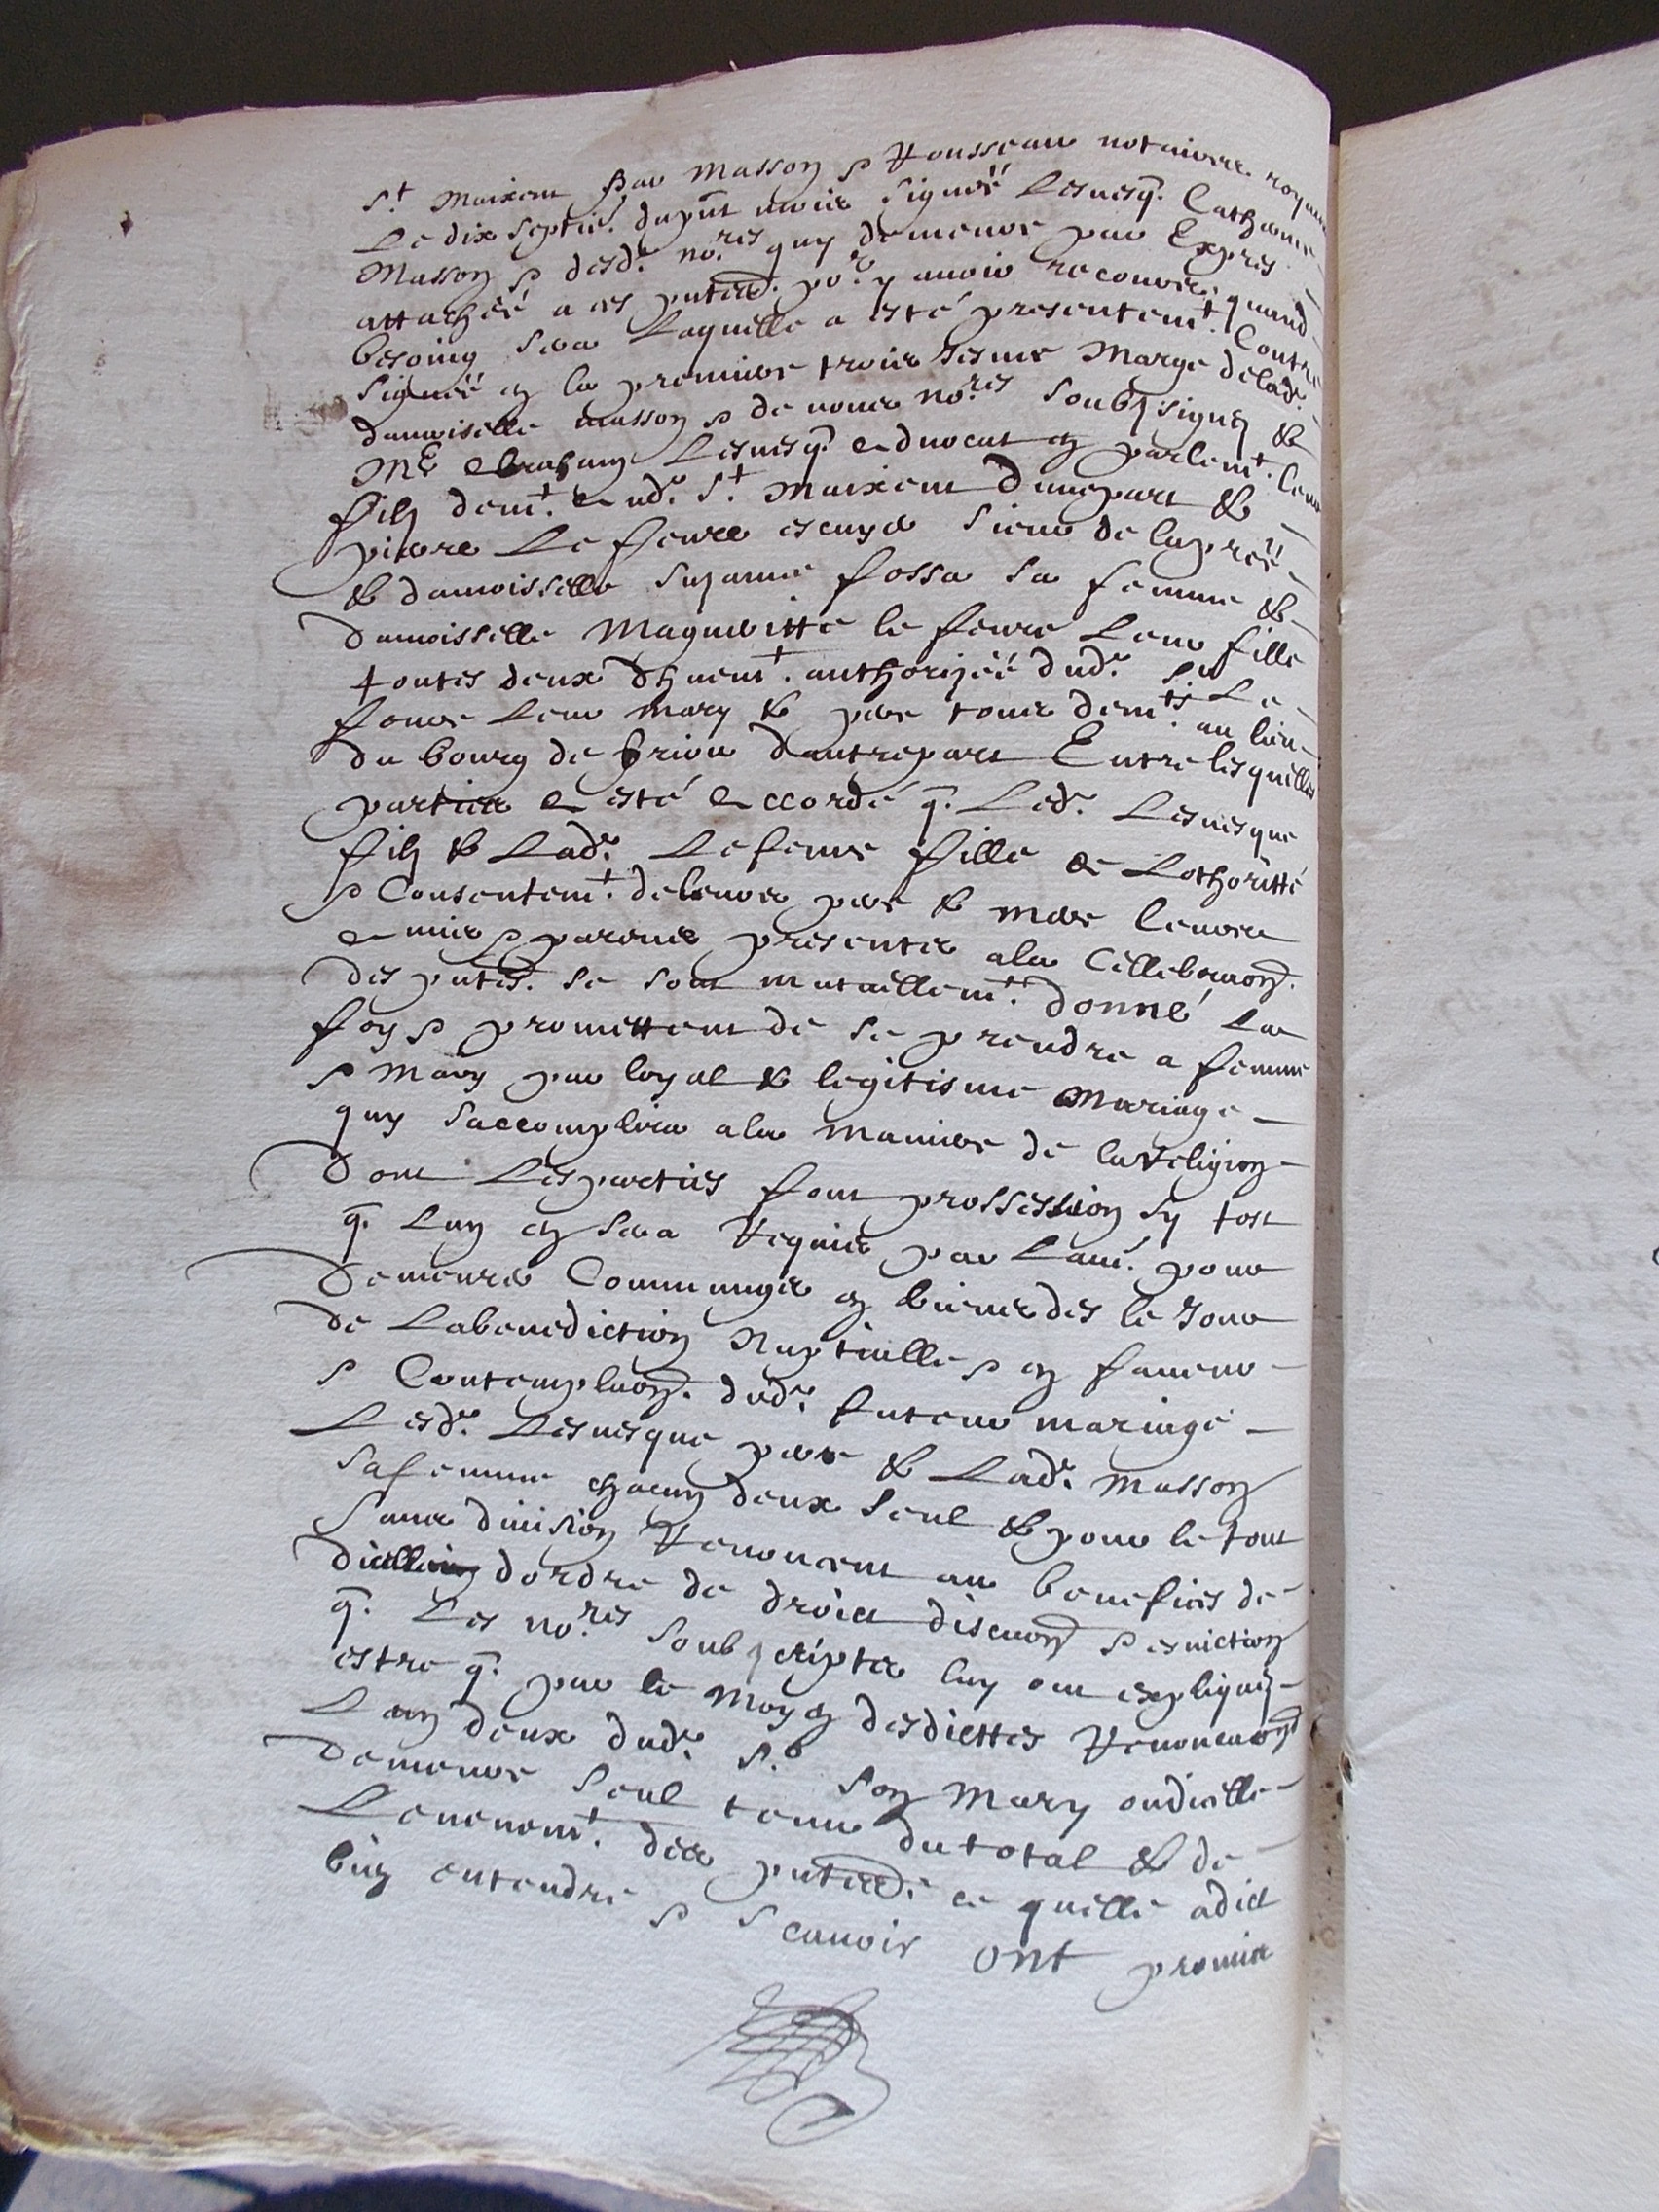 St Maixent par Masson & Rousseau notaires royaux
Le dix septie. dupnt mois signéé Lesvesq. Catherine
Masson & desd. nores quy demeure par Expres
attachéé a ces pntes. por y avoir recours quand
besoing sera Laquelle a esté presentemt. Contre
signéé en la premiere trois iesme Marge delad.
damoiselle masson & de nous nores soubzsignez &
Me Abraham Lesvesq. advocat en parlemt. leur
filz demt. aud. St Maixent d'unepart &
pierre Le fevre escuyer sieur de lapréé
& damoisselle Suzanne fossa sa femme &
damoisselle Margueritte le fevre Leur fille
toutes deux dhuemt. authorizéé dud. sr Le
fevre leur mary & pere tous demts. au lieu
du bourg de brion dautrepart Entre lesquelles
parties a esté accordé q. Led. Lesvesque
filz & Lad. Lefevre fille de Lothoritté
& Consentemt. deleurs pere & mere leurs
amis & parens presents ala Cellebraon.
des pntes. se sont mutuellemt. donné La
foy & promettent de se prendre a femme
& Mary par loyal & legitisme Mariage
quy saccomplira ala maniere de laReligion
dont Lesparties font proffession sy tost
q. Lun en sera Requis par Laut. pour
demeurer Communs en biens des le Jour
de Labenediction Nuptialle & en faveur
& Contemplaon. dud. futeur mariage
Lesd. Lesvesque pere & Lad. Masson
safemme chacun deux seul & pour le tout
sans division Renoncent au benefices de
dordre de droict discuon & eviction
q. Les nores soubzcripts luy ont expliquez
estre q. par le moyen desdicttes Renonciaons
Lun deux dud. sr son Mary oudicelle
demeure seul tenu dutotal & de
Levenemt. des pntes. ce quelle adict
bien entendre & scavoir ont promis